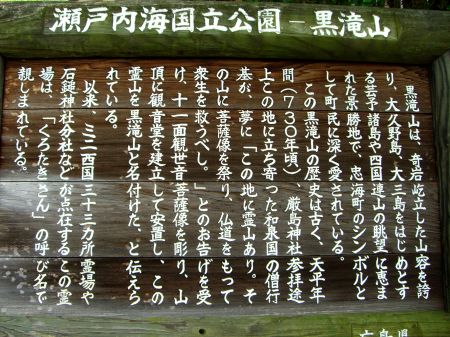 瀬戸内海国立公園－黒滝山
黒滝山は、奇岩屹立した山容を誇
り、大久野島、大三島をはじめとす
る芸予諸島や四国連山の眺望に恵ま
れた景勝地で、忠海町のシンボルと
して町民に深く愛されている。
この黒滝山の歴史は古く、天平年
間（730年頃）、厳島神社参拝途
上この地に立ち寄った和泉国の僧行
基が、夢に「この地に霊山あり。そ
の山に菩薩像を祭り、仏道をもって
衆生を救うべし。」とのお告げを受
け、十一面観世音菩薩像を彫り、山
頂に観音堂を建立して安置し、この
霊山を黒滝山と名付けた、と伝えら
れている。
以来、ミニ西国三十三カ所霊場や
石鎚神社分社などが点在するこの霊
場は、「くろたきさん」の呼び名で
親しまれている。
広島県